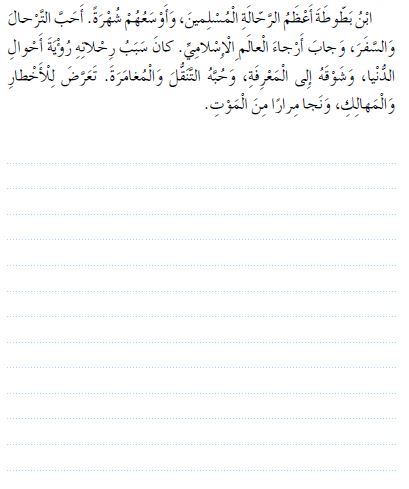 ابْنُ بَطّوطَةَ أَعْظَمُ الرَّحّالَةِ الْمُسْلِمينَ، وَأَوْسَعُهُمْ شُهْرَةً. أَحَبَّ التَّرْحالَ
وَالسَّفَرَ، وَجابَ أَرْجاءَ الْعالَمِ الْإِسْلامِيِّ. كانَ سَبَبُ رِحْلاتِهِ رُؤْيَةَ أَحْوالِ
الدُّنْيا، وَشَوْقَهُ إِلى الْمَعْرِفَةِ، وَحُبَّهُ التَّنَقُّلَ وَالْمُغامَرَةَ. تَعَرَّضَ لِلْأَخْطارِ
وَالْمَهالِكِ، وَنَجا مِرارًا مِنَ الْمَوْتِ.